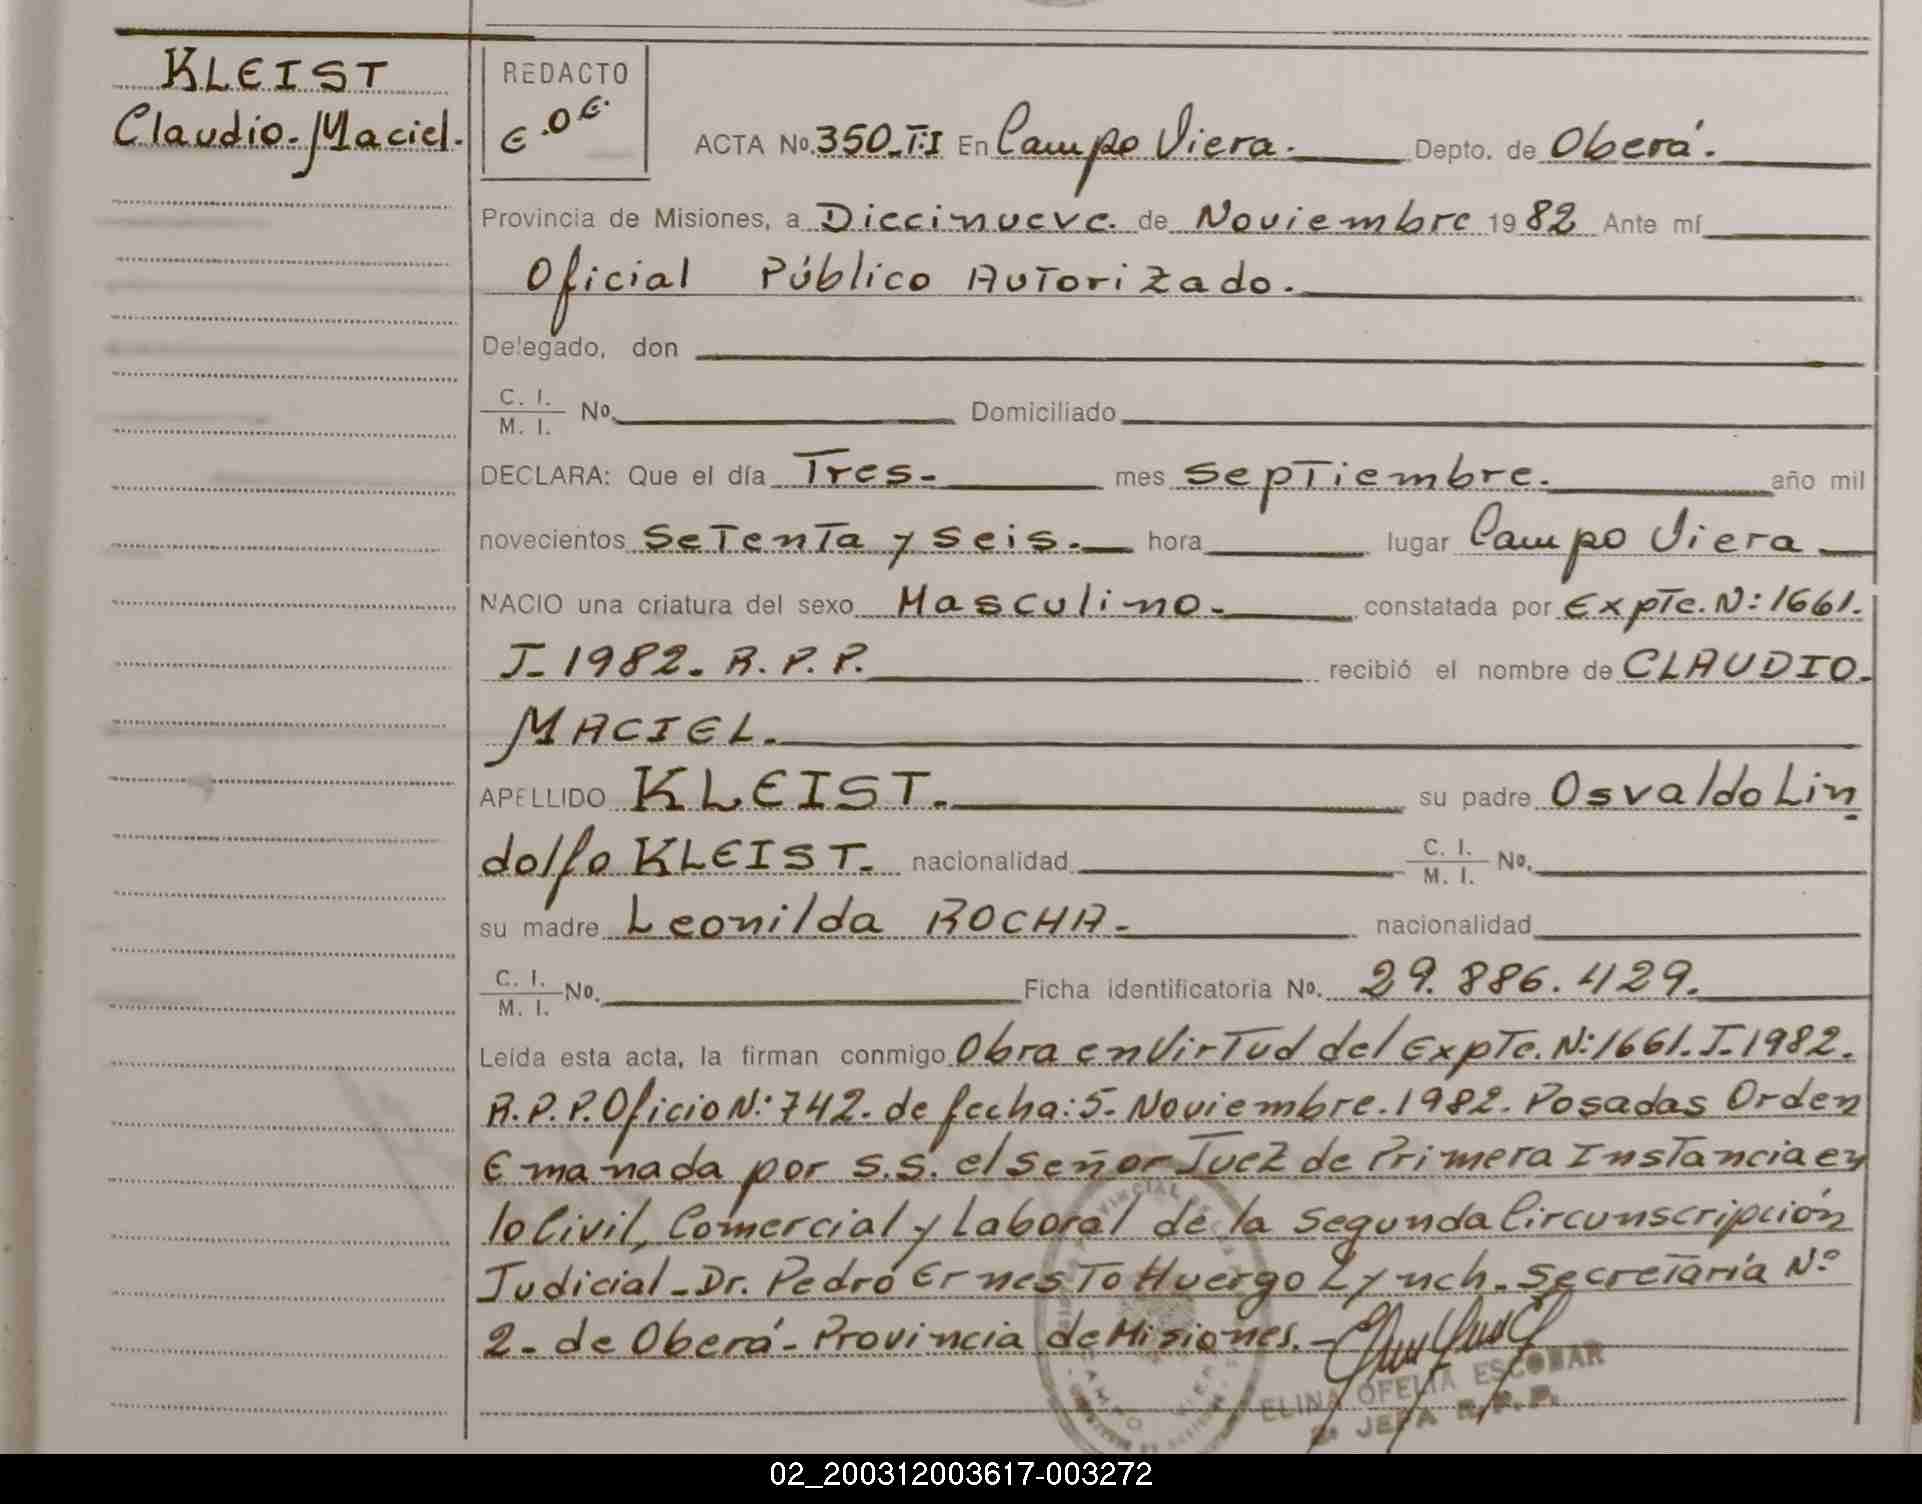 KLEIST
Claudio. Maciel.
REDACTO
E.O.E.
ACTA No. 350_T:I En Campo Viera. Depto. de Oberá.
Provincia de Misiones, a Diecinueve. de Noviembre 1982 Ante mí
Oficial Público Autorizado.
Delegado, don
C. I.
M. I. No. Domiciliado
DECLARA: Que el día Tres. mes Septiembre. año mil
novecientos Setenta y Seis. hora lugar Campo Viera
NACIO una criatura del sexo Masculino. constatada por Expte. N: 1661.
J_1982. R.P.P. recibió el nombre de CLAUDIO.
MACIEL.
APELLIDO KLEIST. su padre Osvaldo Lin
dolfo KLEIST. nacionalidad C. I. M. I. No.
su madre Leonilda ROCHA. nacionalidad
C. I.
M. I. No. Ficha identificatoria No. 29.886.429.
Leída esta acta, la firman conmigo Obra en Virtud del Expte. N: 1661. J_1982.
R.P.P. Oficio N: 742. de fecha: 5. Noviembre. 1982. Posadas Orden
Emanada por S.S. el Señor Juez de Primera Instancia en
lo Civil, Comercial y Laboral de la Segunda Circunscripción
Judicial_Dr. Pedro Ernesto Huergo Lynch. Secretaría Nº
2_ de Oberá_ Provincia de Misiones._
ELINA OFELIA ESCOBAR
2ª JEFA R.P.P.
02_200312003617-003272